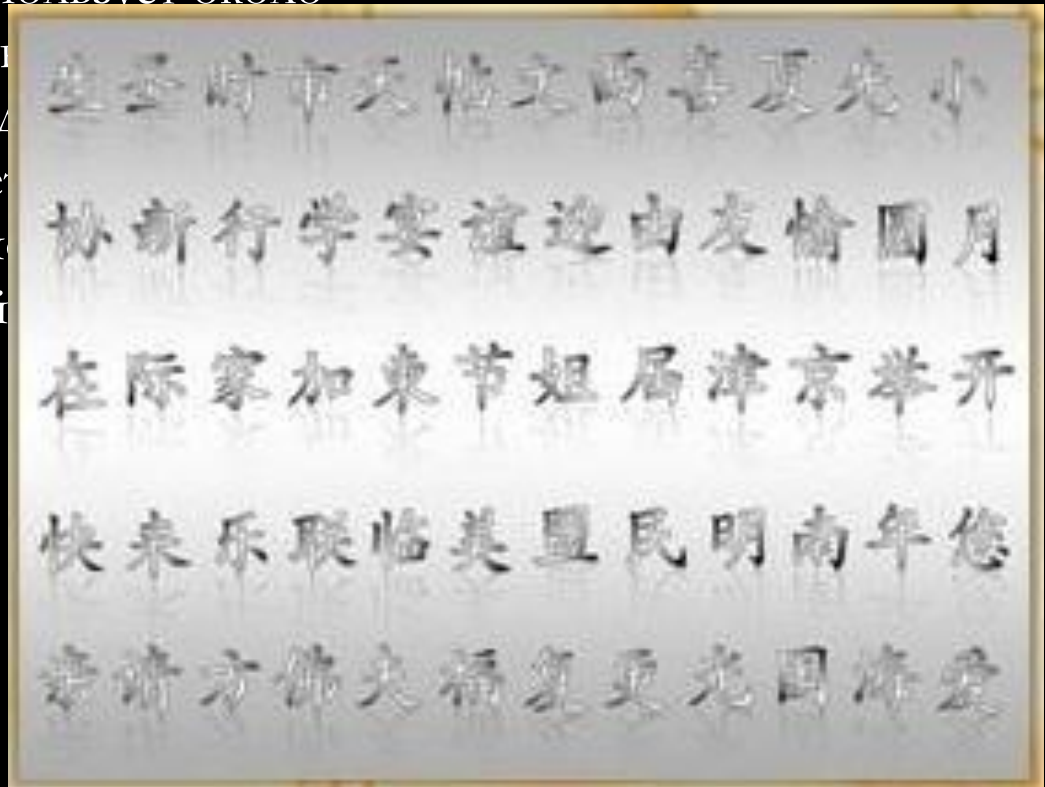 生圣时市天帖文西喜夏先小
协新行学宴谊迎由友愉圆月
在际家加東节姐届津京举开
快来乐联临美盟民明南年您
方佛大福复更光国海爱